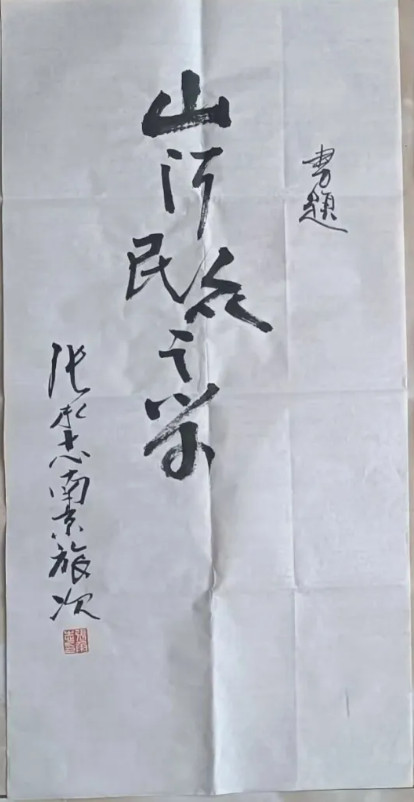 书题
山河民众之学
张承志南京旅次